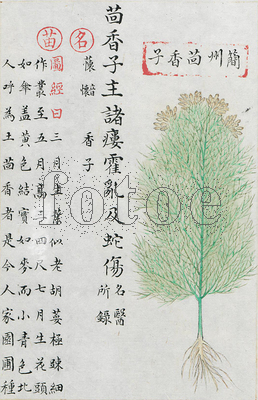 簡州茴香子
茴香子主諸瘻霍亂及蛇傷名醫所錄
名
蘹𧄹香子
苗
圖經曰三月生葉似老胡荽極踈細
作叢至五月高三四尺七月生花頭
如傘蓋黃色結實如麥而小青色北
人呼為土茴香者是今人家園圃種
fotoe